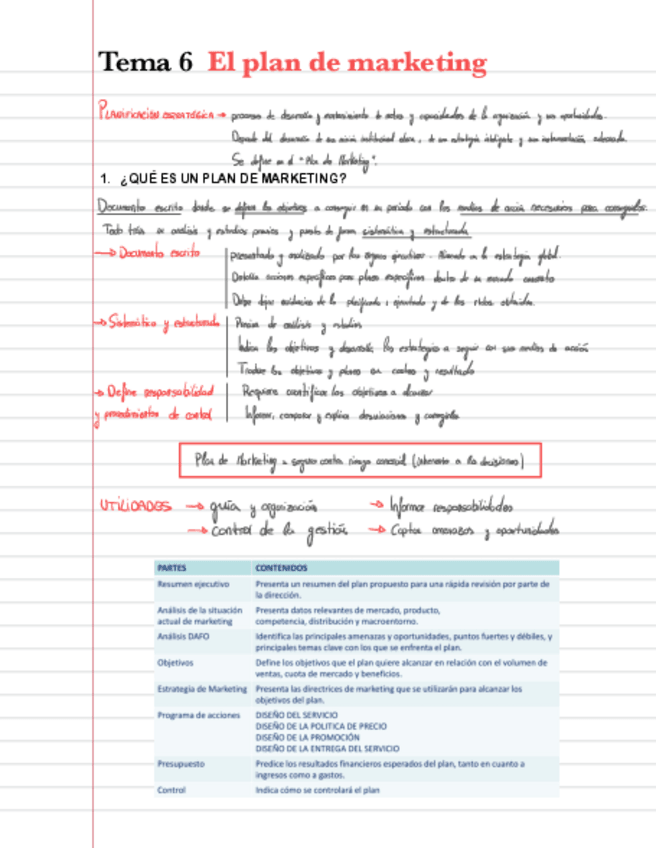 Tema 6 El plan de marketing
PLANIFICACIÓN ESTRATÉGICA → proceso de desarrollo y mantenimiento de metas y capacidades de la organización y sus oportunidades.
Depende del desarrollo de una misión institucional clara, de una estrategia inteligente y una instrumentación adecuada.
Se define en el "Plan de Marketing".
1. ¿QUÉ ES UN PLAN DE MARKETING?
Documento escrito donde se definen los objetivos a conseguir en un periodo con los medios de acción necesarios para conseguirlos.
Todo tras un análisis y estudios previos y puesto de forma sistemática y estructurada
→ Documento escrito
presentado y analizado por los órganos ejecutivos. en la estrategia global.
Detalla acciones específicas para plazos específicos dentro de un concreto
Debe dejar evidencias de lo planificado, ejecutado y de los rtdos obtenidos.
→ Sistemático y estructurado
Precisa de análisis y estudios
Indica los objetivos y desarrolla las estrategias a seguir con sus medios de acción
Traduce los objetivos y planes en costes y resultados
→ Define responsabilidad
y procedimientos de control
Requiere cuantificar los objetivos a alcanzar
Informar, comparar y explicar desviaciones y corregirlas
Plan de Marketing = seguro contra riesgo comercial (inherente a las decisiones)
UTILIDADES → guía y organización → Informar responsabilidades
→ control de la gestión → Captar amenazas y oportunidades
PARTES CONTENIDOS
Resumen ejecutivo Presenta un resumen del plan propuesto para una rápida revisión por parte de
la dirección.
Análisis de la situación Presenta datos relevantes de mercado, producto,
actual de marketing competencia, distribución y macroentorno.
Análisis DAFO Identifica las principales amenazas y oportunidades, puntos fuertes y débiles, y
principales temas clave con los que se enfrenta el plan.
Objetivos Define los objetivos que el plan quiere alcanzar en relación con el volumen de
ventas, cuota de mercado y beneficios.
Estrategia de Marketing Presenta las directrices de marketing que se utilizarán para alcanzar los
objetivos del plan.
Programa de acciones DISEÑO DEL SERVICIO
DISEÑO DE LA POLITICA DE PRECIO
DISEÑO DE LA PROMOCIÓN
DISEÑO DE LA ENTREGA DEL SERVICIO
Presupuesto Predice los resultados financieros esperados del plan, tanto en cuanto a
ingresos como a gastos.
Control Indica cómo se controlará el plan